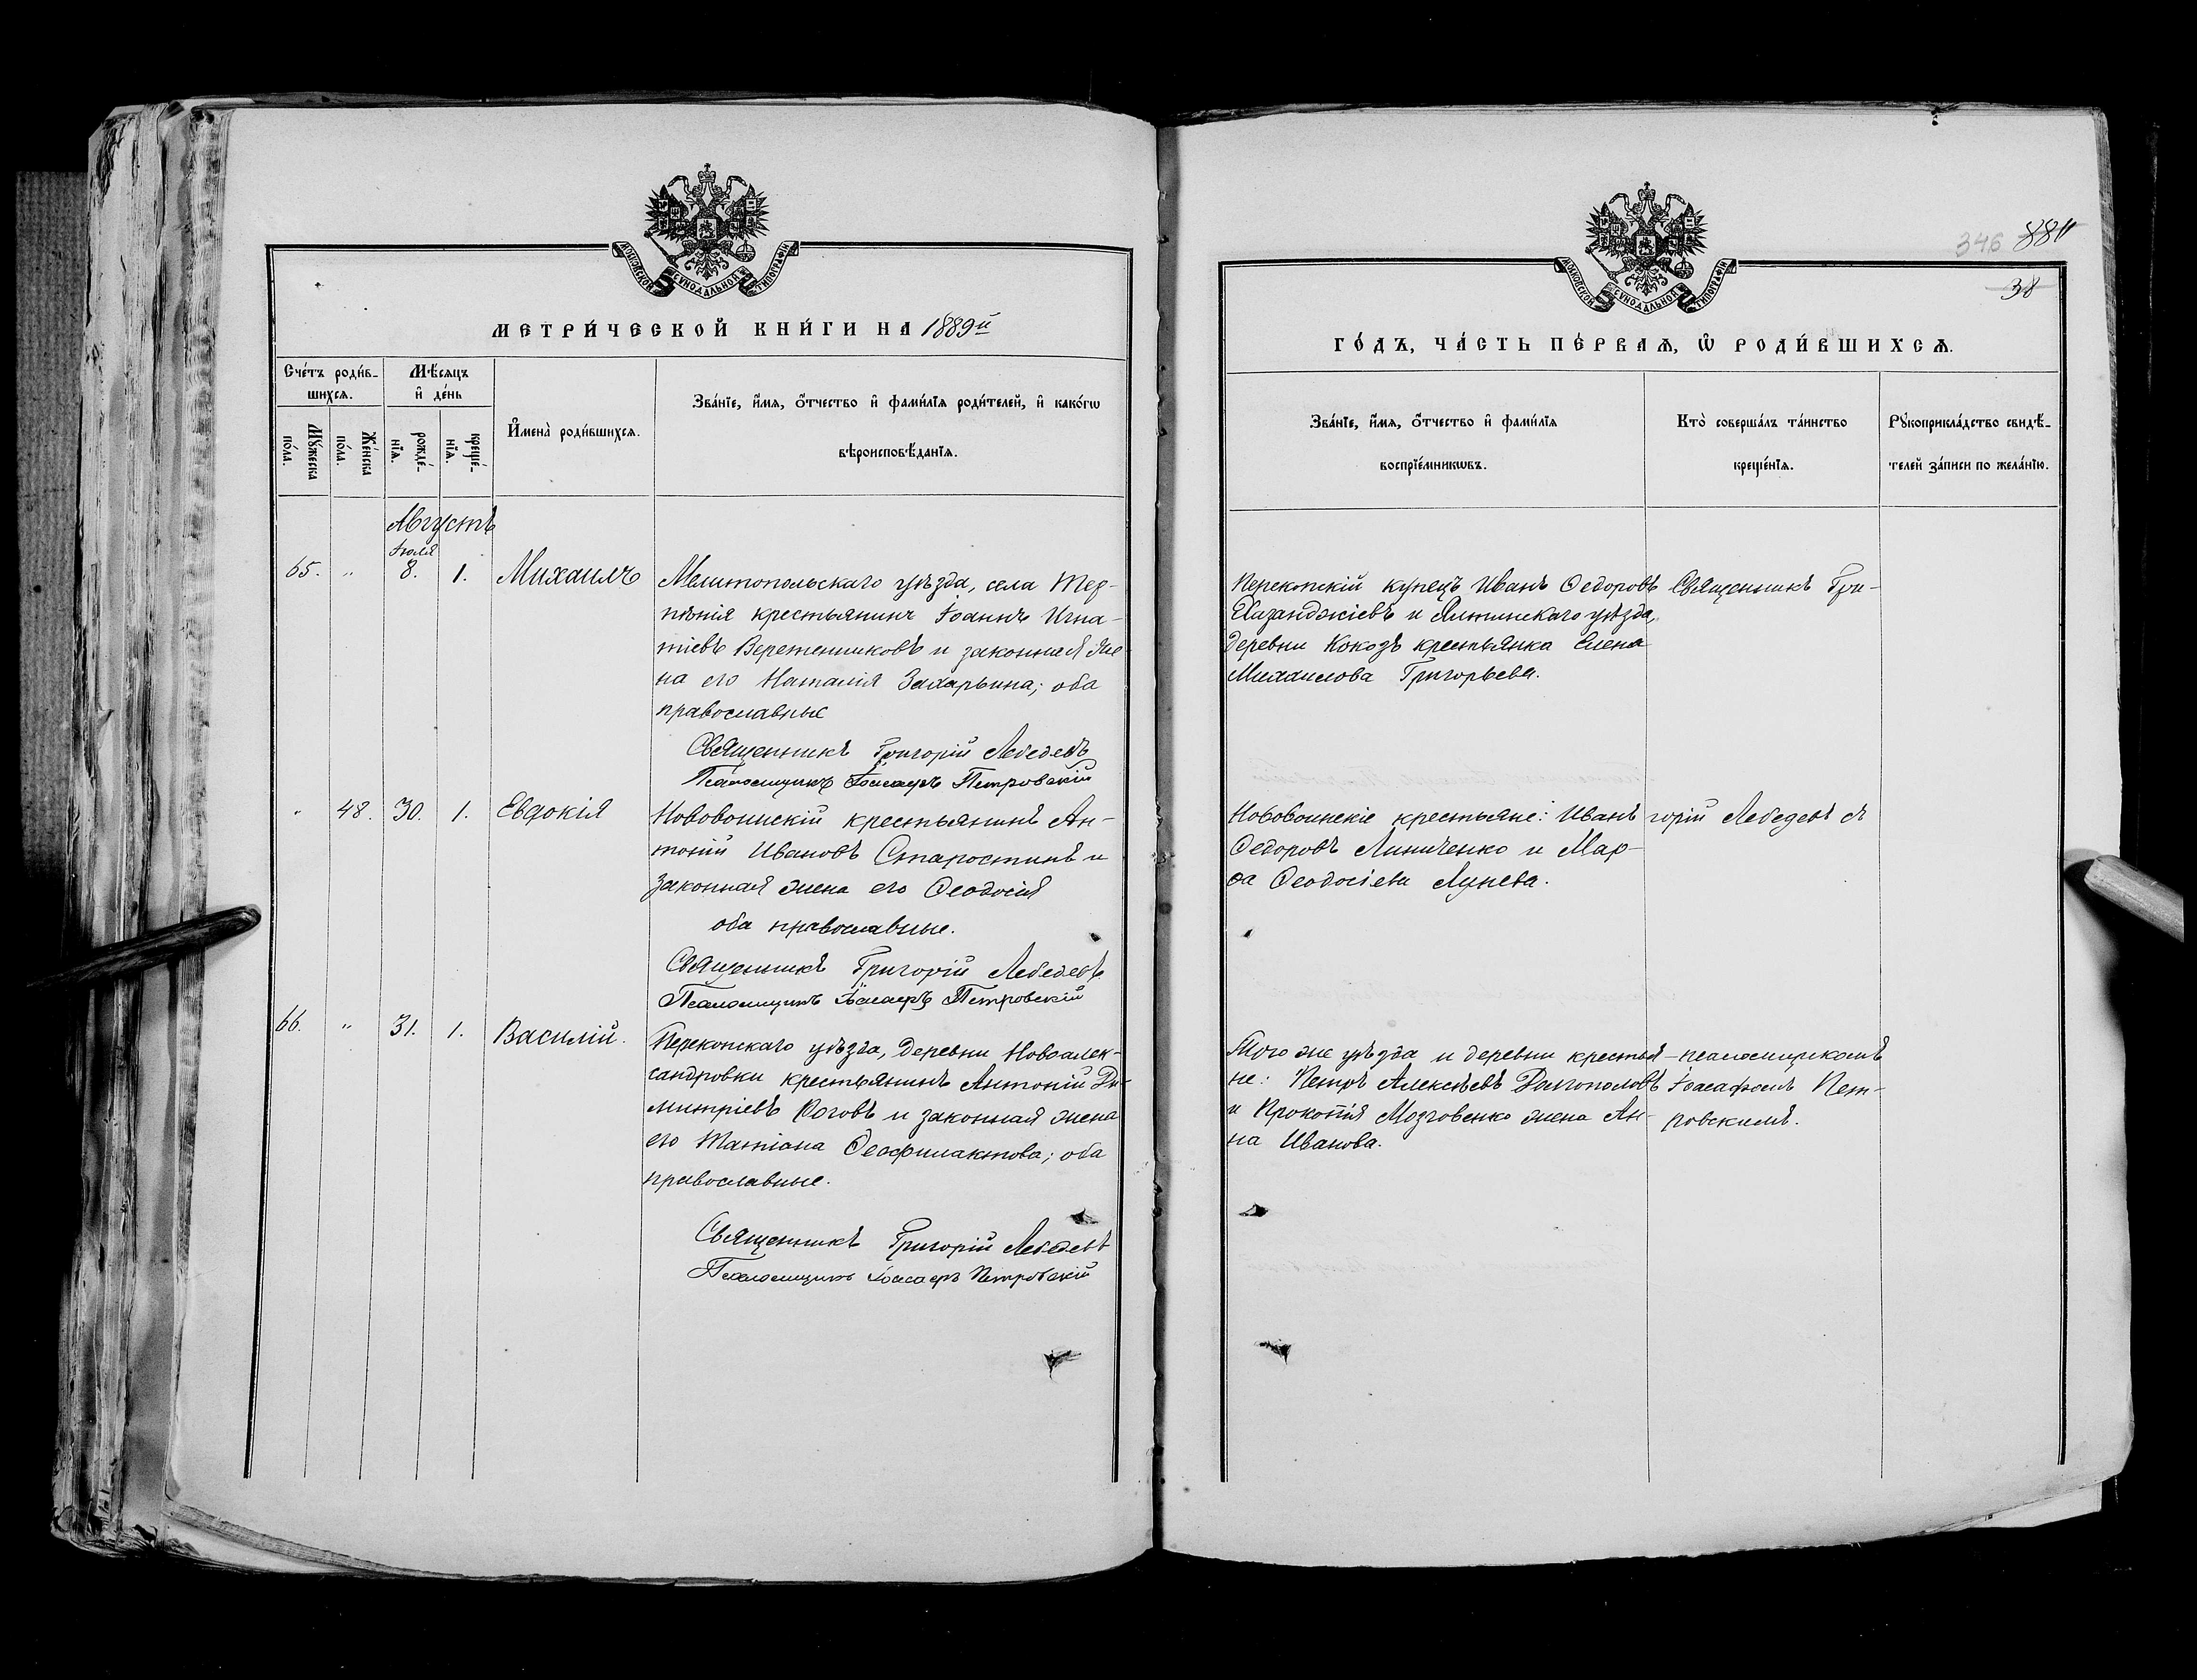 МОСКОВСКОЙ СѴНОДАЛЬНОЙ ТИПОГРАФІИ
МЕТРИ́ЧЕСКОЙ КНИ́ГИ НА 1889й
Сче́тъ роди́в-
шихсѧ.
Мѣ́сѧцъ
и҆ де́нь
И҆мена̀ роди́вшихсѧ.
Зва́нїе, и҆́мѧ, ѻ҆́тчество и҆ фами́лїѧ роди́телей, и҆ како́гѡ
вѣроисповѣ́данїѧ.
Мꙋ́жеска
по́ла.
Же́нска
по́ла.
рожде́-
нїѧ.
креще́-
нїѧ.
Августъ
Іюля
65. " 8. 1. Михаилъ
Мелитопольскаго уѣзда, села Тер-
пѣнія крестьянинъ Іоаннъ Игна-
тіевъ Веретенниковъ и законная же-
на его Наталія Захарьина; оба
православные
Священникъ Григорій Лебедевъ
Псаломщикъ Іоасафъ Петровскій
" 48. 30. 1. Евдокія
Нововоинскій крестьянинъ Ан-
тоній Ивановъ Старостинъ и
законная жена его Ѳеодосія
оба православные.
Священникъ Григорій Лебедевъ
Псаломщикъ Іоасафъ Петровскій
66. " 31. 1. Василій.
Перекопскаго уѣзда, деревни Новоалек-
сандровки крестьянинъ Антоній Ди-
митріевъ Роговъ и законная жена
его Татіана Ѳеофилактова; оба
православные.
Священникъ Григорій Лебедевъ
Псаломщикъ Іоасафъ Петровскій
МОСКОВСКОЙ СѴНОДАЛЬНОЙ ТИПОГРАФІИ
346
38
ГО́ДЪ, ЧА́СТЬ ПЕ́РВАѦ, Ѡ҆ РОДИ́ВШИХСѦ.
Зва́нїе, и҆́мѧ, ѻ҆́тчество и҆ фами́лїѧ
воспрїе́мникѡвъ.
Кто̀ соверша́лъ та́инство
креще́нїѧ.
Рꙋкоприкла́дство свидѣ́-
телей за́писи по жела́нїю.
Перекопскій купецъ Иванъ Ѳедоровъ
Хазанджіевъ и Ялтинскаго уѣзда,
деревни Кокозъ крестьянка Елена
Михаилова Григорьева.
Священникъ Гри-
Нововоинскіе крестьяне: Иванъ
Ѳедоровъ Линиченко и Мар-
ѳа Ѳеодосіева Лунева.
горій Лебедевъ съ
Того же уѣзда и деревни крестья-
не: Петръ Алексѣевъ Долгополовъ
и Прокопія Мозговенко жена Ан-
на Иванова.
псаломщикомъ
Іоасафомъ Пет-
ровскимъ.